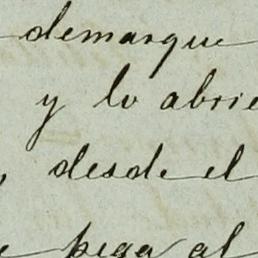 demarque
y lo abrie
, desde el
pega al